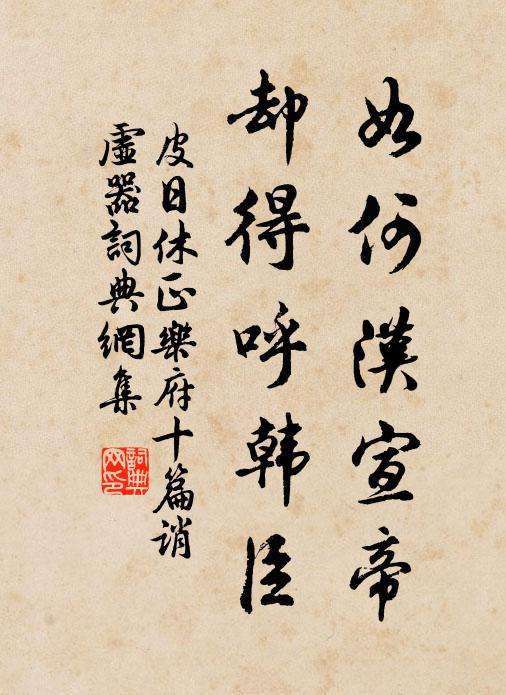 如何漢宣帝
却得呼韩臣
皮日休正樂府十篇誚
虛器詞典網集
詞典网印